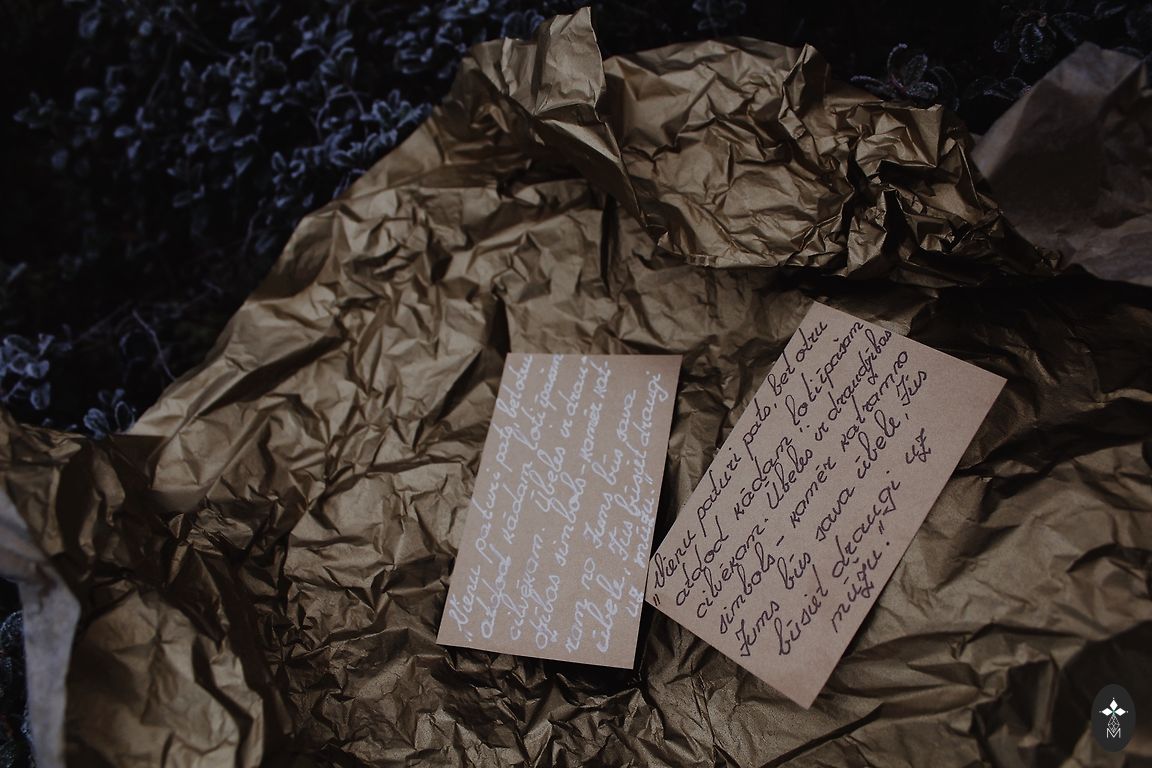 „Vienu paturi pats, bet otru
atdod kādam ļoti īpašam
cilvēkam. Ūbeles ir draud-
zības simbols - kamēr kat-
ram no Jums būs sava
ūbele, Jūs būsiet draugi
uz mūžu."
„Vienu paturi pats, bet otru
atdod kādam ļoti īpašam
cilvēkam. Ūbeles ir draudzības
simbols - kamēr katram no
Jums būs sava ūbele, Jūs
būsiet draugi uz
mūžu."
M